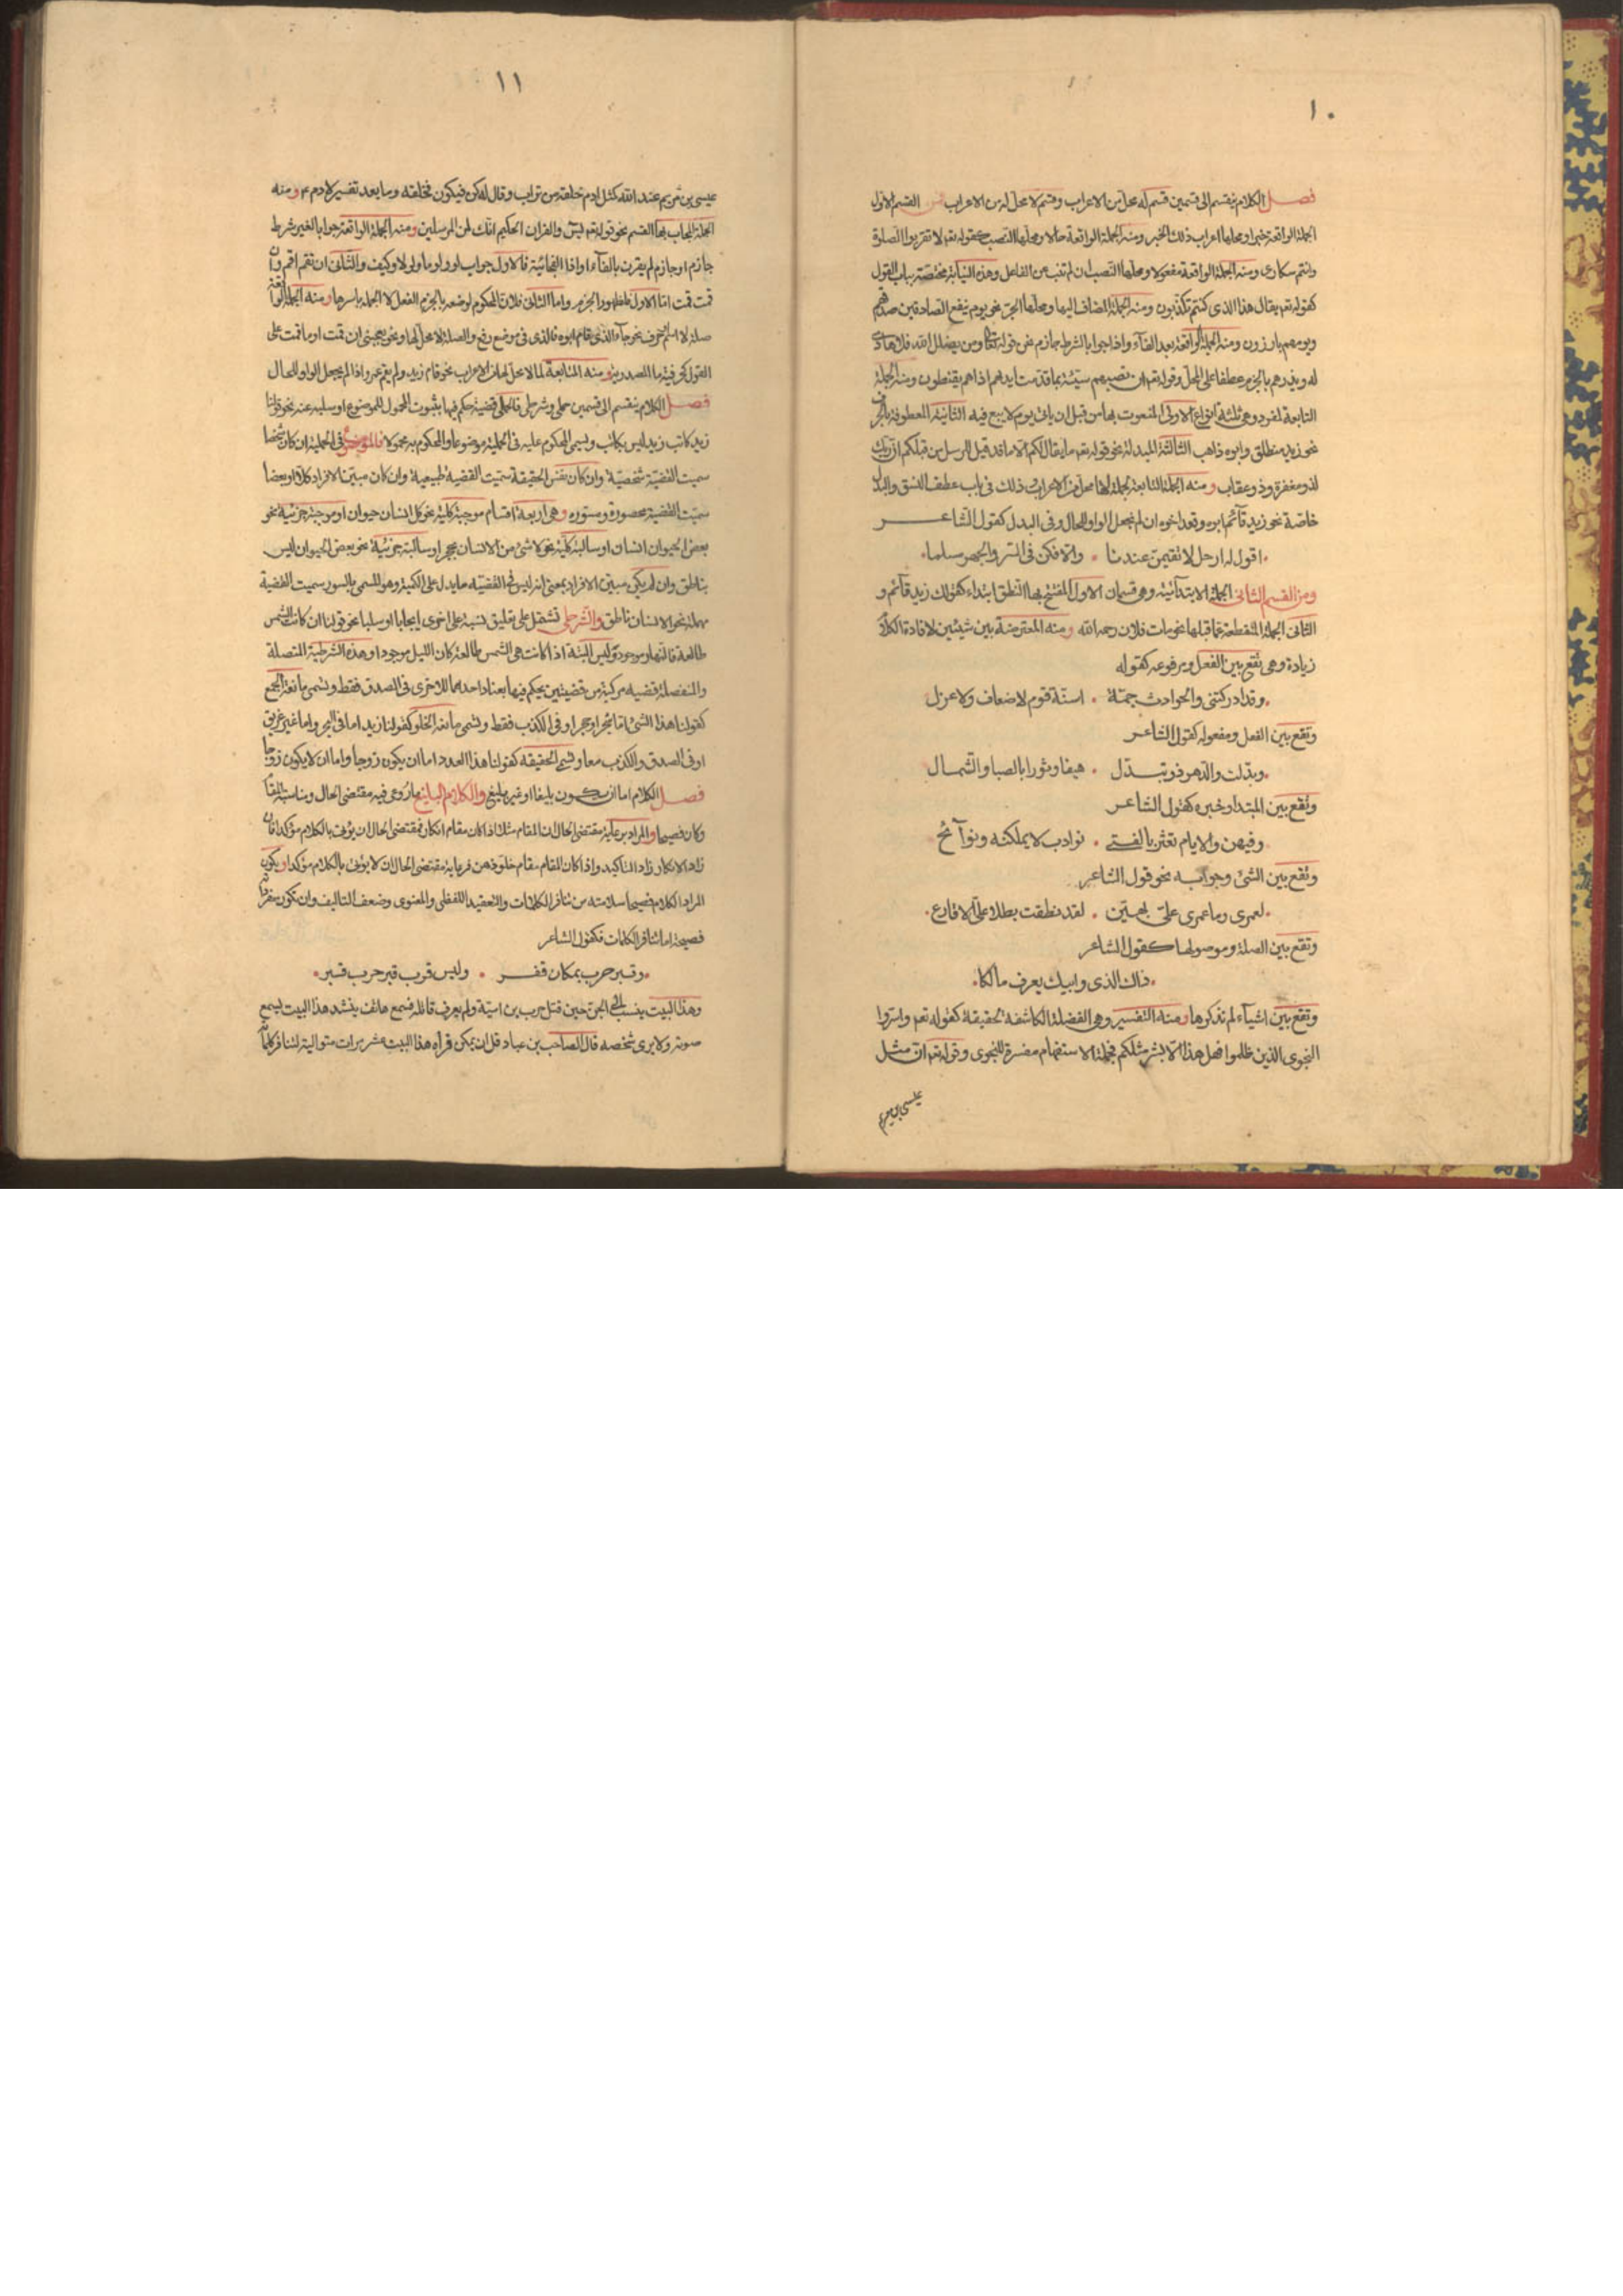 ١٠
فصل الكلام ينقسم الى قسمين قسم له محل من الاعراب وقسم لا محل له من الاعراب فمن القسم الاول
الجملة الواقعة خبرا ومحلها اعراب ذلك الخبر ومنه الجملة الواقعة حالا ومحلها النصب كقوله تعم لا تقربوا الصلوة
وانتم سكارى ومنه الجملة الواقعة مفعولا ومحلها النصب ان لم تنب عن الفاعل وهذه النيابة مختصة بباب القول
كقوله تعم يقال هذا الذى كنتم تكذبون ومنه الجملة المضاف اليها ومحلها الجر نحو يوم ينفع الصادقين صدقهم
ويوم هم بارزون ومنه الجملة الواقعة بعد الفآء واذا جوابا لشرط جازم نحو قوله تعا ومن يضلل الله فلا هادى
له ويذرهم بالجزم عطفا على المحل وقوله تعم ان تصبهم سيئة بما قدمت ايديهم اذا هم يقنطون ومنه الجملة
التابعة لمفرد وهى ثلثة انواع الاولى المنعوت بها من قبل ان ياتى يوم لا بيع فيه الثانية المعطوفة بالحرف
نحو زيد منطلق وابوه ذاهب الثالثة المبدلة نحو قوله تعم ما يقال لكم الا ما قد قيل للرسل من قبلكم ان ربك
لذو مغفرة وذو عقاب ومنه الجملة التابعة لجملة لها محل من الاعراب وذلك فى باب عطف النسق والبدل
خاصة نحو زيد قآئم ابوه وقعد اخوه ان لم نجعل الواو للحال وفى البدل كقول الشاعر
اقول له ارحل لا تقيمن عندنا . والا فكن فى السر والجهر مسلما
ومن القسم الثانى الجملة الابتدآئية وهى قسمان الاول المفتتح بها النطق ابتداء كقولك زيد قآئم و
الثانى الجملة المنقطعة عما قبلها نحو مات فلان رحمه الله ومنه المعترضة بين شيئين لافادة الكلام
زيادة وهى تقع بين الفعل ومرفوعه كقوله
وقد ادركتنى والحوادث جمة . اسنة قوم لا ضعاف ولا عزل
وتقع بين الفعل ومفعوله كقول الشاعر
وبدلت والدهر ذو تبدل . هيفا ودبورا بالصبا والشمال
وتقع بين المبتدا وخبره كقول الشاعر
وفيهن والايام تعثرن بالفتى . نوادب لا يمللنه ونوآئح
وتقع بين الشئ وجوابه نحو قول الشاعر
لعمرى وما عمرى على بهين . لقد نطقت بطلا على الاقارع
وتقع بين الصلة وموصولها كقول الشاعر
ذاك الذى وابيك يعرف مالكا
وتقع بين اشيآء لم نذكرها ومنه التفسير وهى الفضلة الكاشفة لحقيقة كقوله تعم واسروا
النجوى الذين ظلموا هل هذا الا بشر مثلكم فجملة الاستفهام مفسرة للنجوى وقوله تعم ان مثل
عيسى بن مريم
١١
عيسى بن مريم عند الله كمثل ادم خلقه من تراب وقال له كن فيكون فخلقه وما بعد تفسير لادم ومنه
الجملة المجاب بها القسم نحو قوله تعم يس والقران الحكيم انك لمن المرسلين ومنه الجملة الواقعة جوابا لغير شرط
جازم او جازم لم يقترن بالفآء او اذا الفجائية فالاول جواب لو ولوما ولولا وكيف والثانى ان تقم اقم وان
قمت قمت اما الاول فلظهور الجزم واما الثانى فلان المحكوم لموضعه بالجزم الفعل لا الجملة باسرها ومنه الجملة الواقعة
صلة لاسم او حرف نحو جآء الذى قام ابوه فالذى فى موضع رفع والصلة لا محل لها ونحو يعجبنى ان قمت او ما قمت على
القول بحرفية ما المصدرية ومنه التابعة لما لا محل لها من الاعراب نحو قام زيد ولم يقم عمرو اذا لم يجعل الواو للحال
فصل الكلام ينقسم الى قسمين حملى وشرطى فالحملى قضية حكم فيها بثبوت المحمول للموضوع او سلبه عنه نحو قولنا
زيد كاتب وزيد ليس بكاتب ويسمى المحكوم عليه فى الحملية موضوعا والمحكوم به محمولا فالموضوع فى الحملية ان كان شخصا
سميت القضية شخصية وان كان نفس الحقيقة سميت القضية طبيعية وان كان مبين الافراد كلا او بعضا
سميت القضية محصورة ومسورة وهى اربعة اقسام موجبة كلية نحو كل انسان حيوان او موجبة جزئية نحو
بعض الحيوان انسان او سالبة كلية نحو لا شئ من الانسان بحجر او سالبة جزئية نحو بعض الحيوان ليس
بناطق وان لم يكن مبين الافراد بمعنى انه ليس فى القضية ما يدل على الكمية وهو المسمى بالسور سميت القضية
مهملة نحو الانسان ناطق والشرطى تشتمل على تعليق نسبة على اخرى ايجابا او سلبا نحو قولنا ان كانت الشمس
طالعة فالنهار موجود وليس البتة اذا كانت هى الشمس طالعة كان الليل موجودا وهذه الشرطية المتصلة
والمنفصلة قضية مركبة من قضيتين يحكم فيها بعناد احدهما للاخرى فى الصدق فقط وتسمى مانعة الجمع
كقولنا هذا الشئ اما شجر او حجر او فى الكذب فقط وتسمى مانعة الخلو كقولنا زيد اما فى البحر واما غير غريق
او فى الصدق والكذب معا وتسمى الحقيقة كقولنا هذا العدد اما ان يكون زوجا واما ان لا يكون زوجا
فصل الكلام اما ان يكون بليغا او غير بليغ والكلام البليغ ما روعى فيه مقتضى الحال ومناسبة المقام
وكان فصيحا والمراد برعاية مقتضى الحال ان المقام مثلا اذا كان مقام انكار فمقتضى الحال ان يؤتى بالكلام مؤكدا فان
زاد الانكار زاد التاكيد واذا كان المقام مقام خلو ذهن فرعاية مقتضى الحال ان لا يؤتى بالكلام مؤكدا ويكون
المراد الكلام فصيحا سلامته من تنافر الكلمات والتعقيد اللفظى والمعنوى وضعف التاليف وان تكون مفرداته
فصيحة اما تنافر الكلمات فكقول الشاعر
وقبر حرب بمكان قفر . وليس قرب قبر حرب قبر
وهذا البيت ينسب الى الجن حين قتل حرب بن امية ولم يعرف قاتله فسمع هاتف ينشد هذا البيت يسمع
صوته ولا يرى شخصه قال الصاحب بن عباد قل ان يمكن قراة هذا البيت عشر مرات متوالية لتنافر كلماته